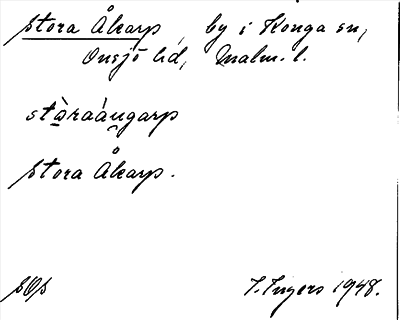 Stora Åkarp, by i Konga sn,
Onsjö hd, Malm. l.
stòraáŋgarp
Stora Åkarp.
SOS
I. Ingers 1948.